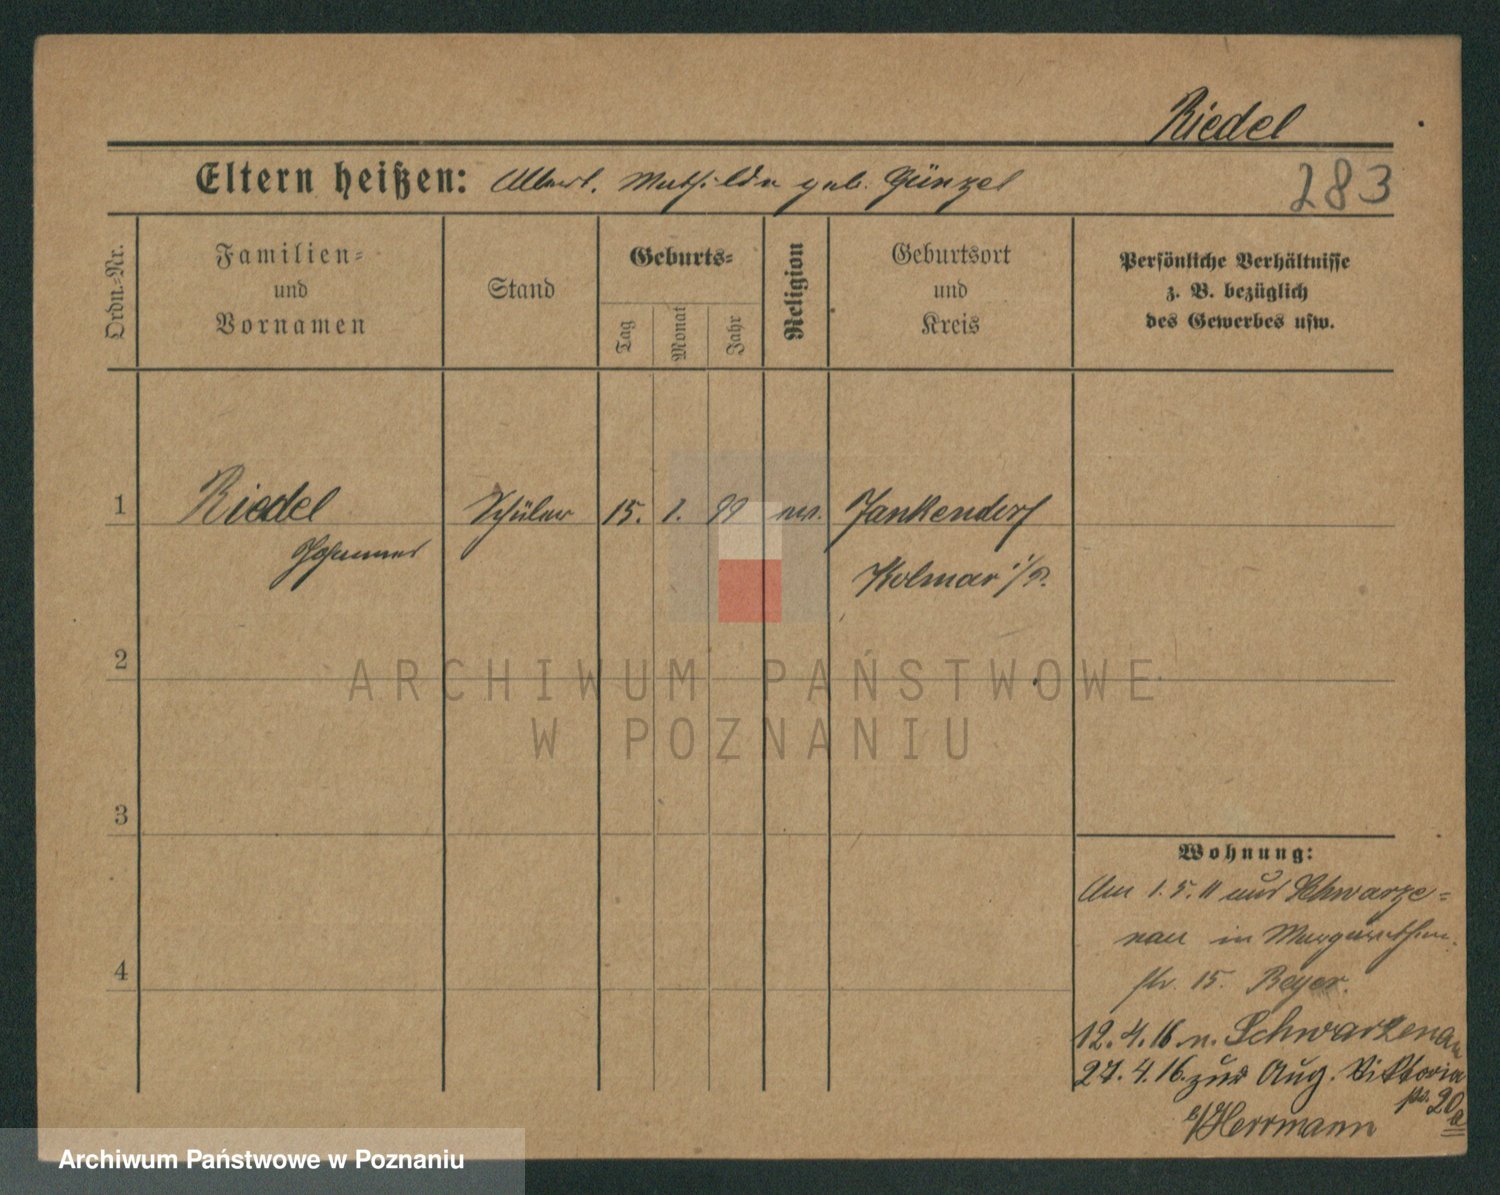 Riedel
Eltern heißen: Albert. Mathilde geb. Günzel
283
Ordn.-Nr.
Familien-
und
Vornamen
Stand
Geburts-
Tag
Monat
Jahr
Religion
Geburtsort
und
Kreis
Persönliche Verhältnisse
z. B. bezüglich
des Gewerbes usw.
1 Riedel Schüler 15. 1. 99 ev. Jankendorf
Johannes Kolmar i/P.
2
3
4
Wohnung:
Am 1.5.11 aus Schwarze-
nau in Margarethen-
str. 15. Beyer.
12.4.16 n. Schwarzenau
27.4.16 zur Aug. Viktoria
str. 20a
b/Herrmann
ARCHIWUM PAŃSTWOWE
W POZNANIU
Archiwum Państwowe w Poznaniu